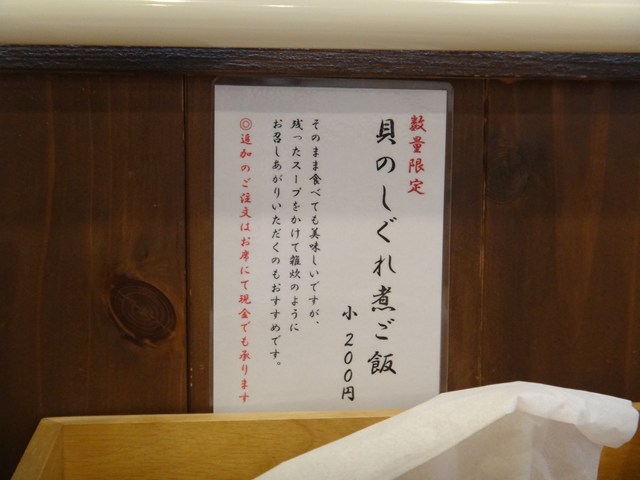 数量限定
貝のしぐれ煮ご飯
小 200円
そのまま食べても美味しいですが、
残ったスープをかけて雑炊のように
お召しあがりいただくのもおすすめです。
◎追加のご注文はお席にて現金でも承ります